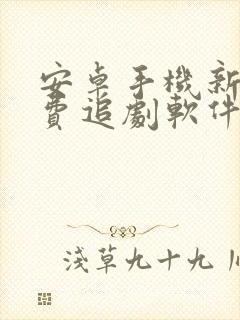 安卓手機新
費追劇軟件
淺草九十九川